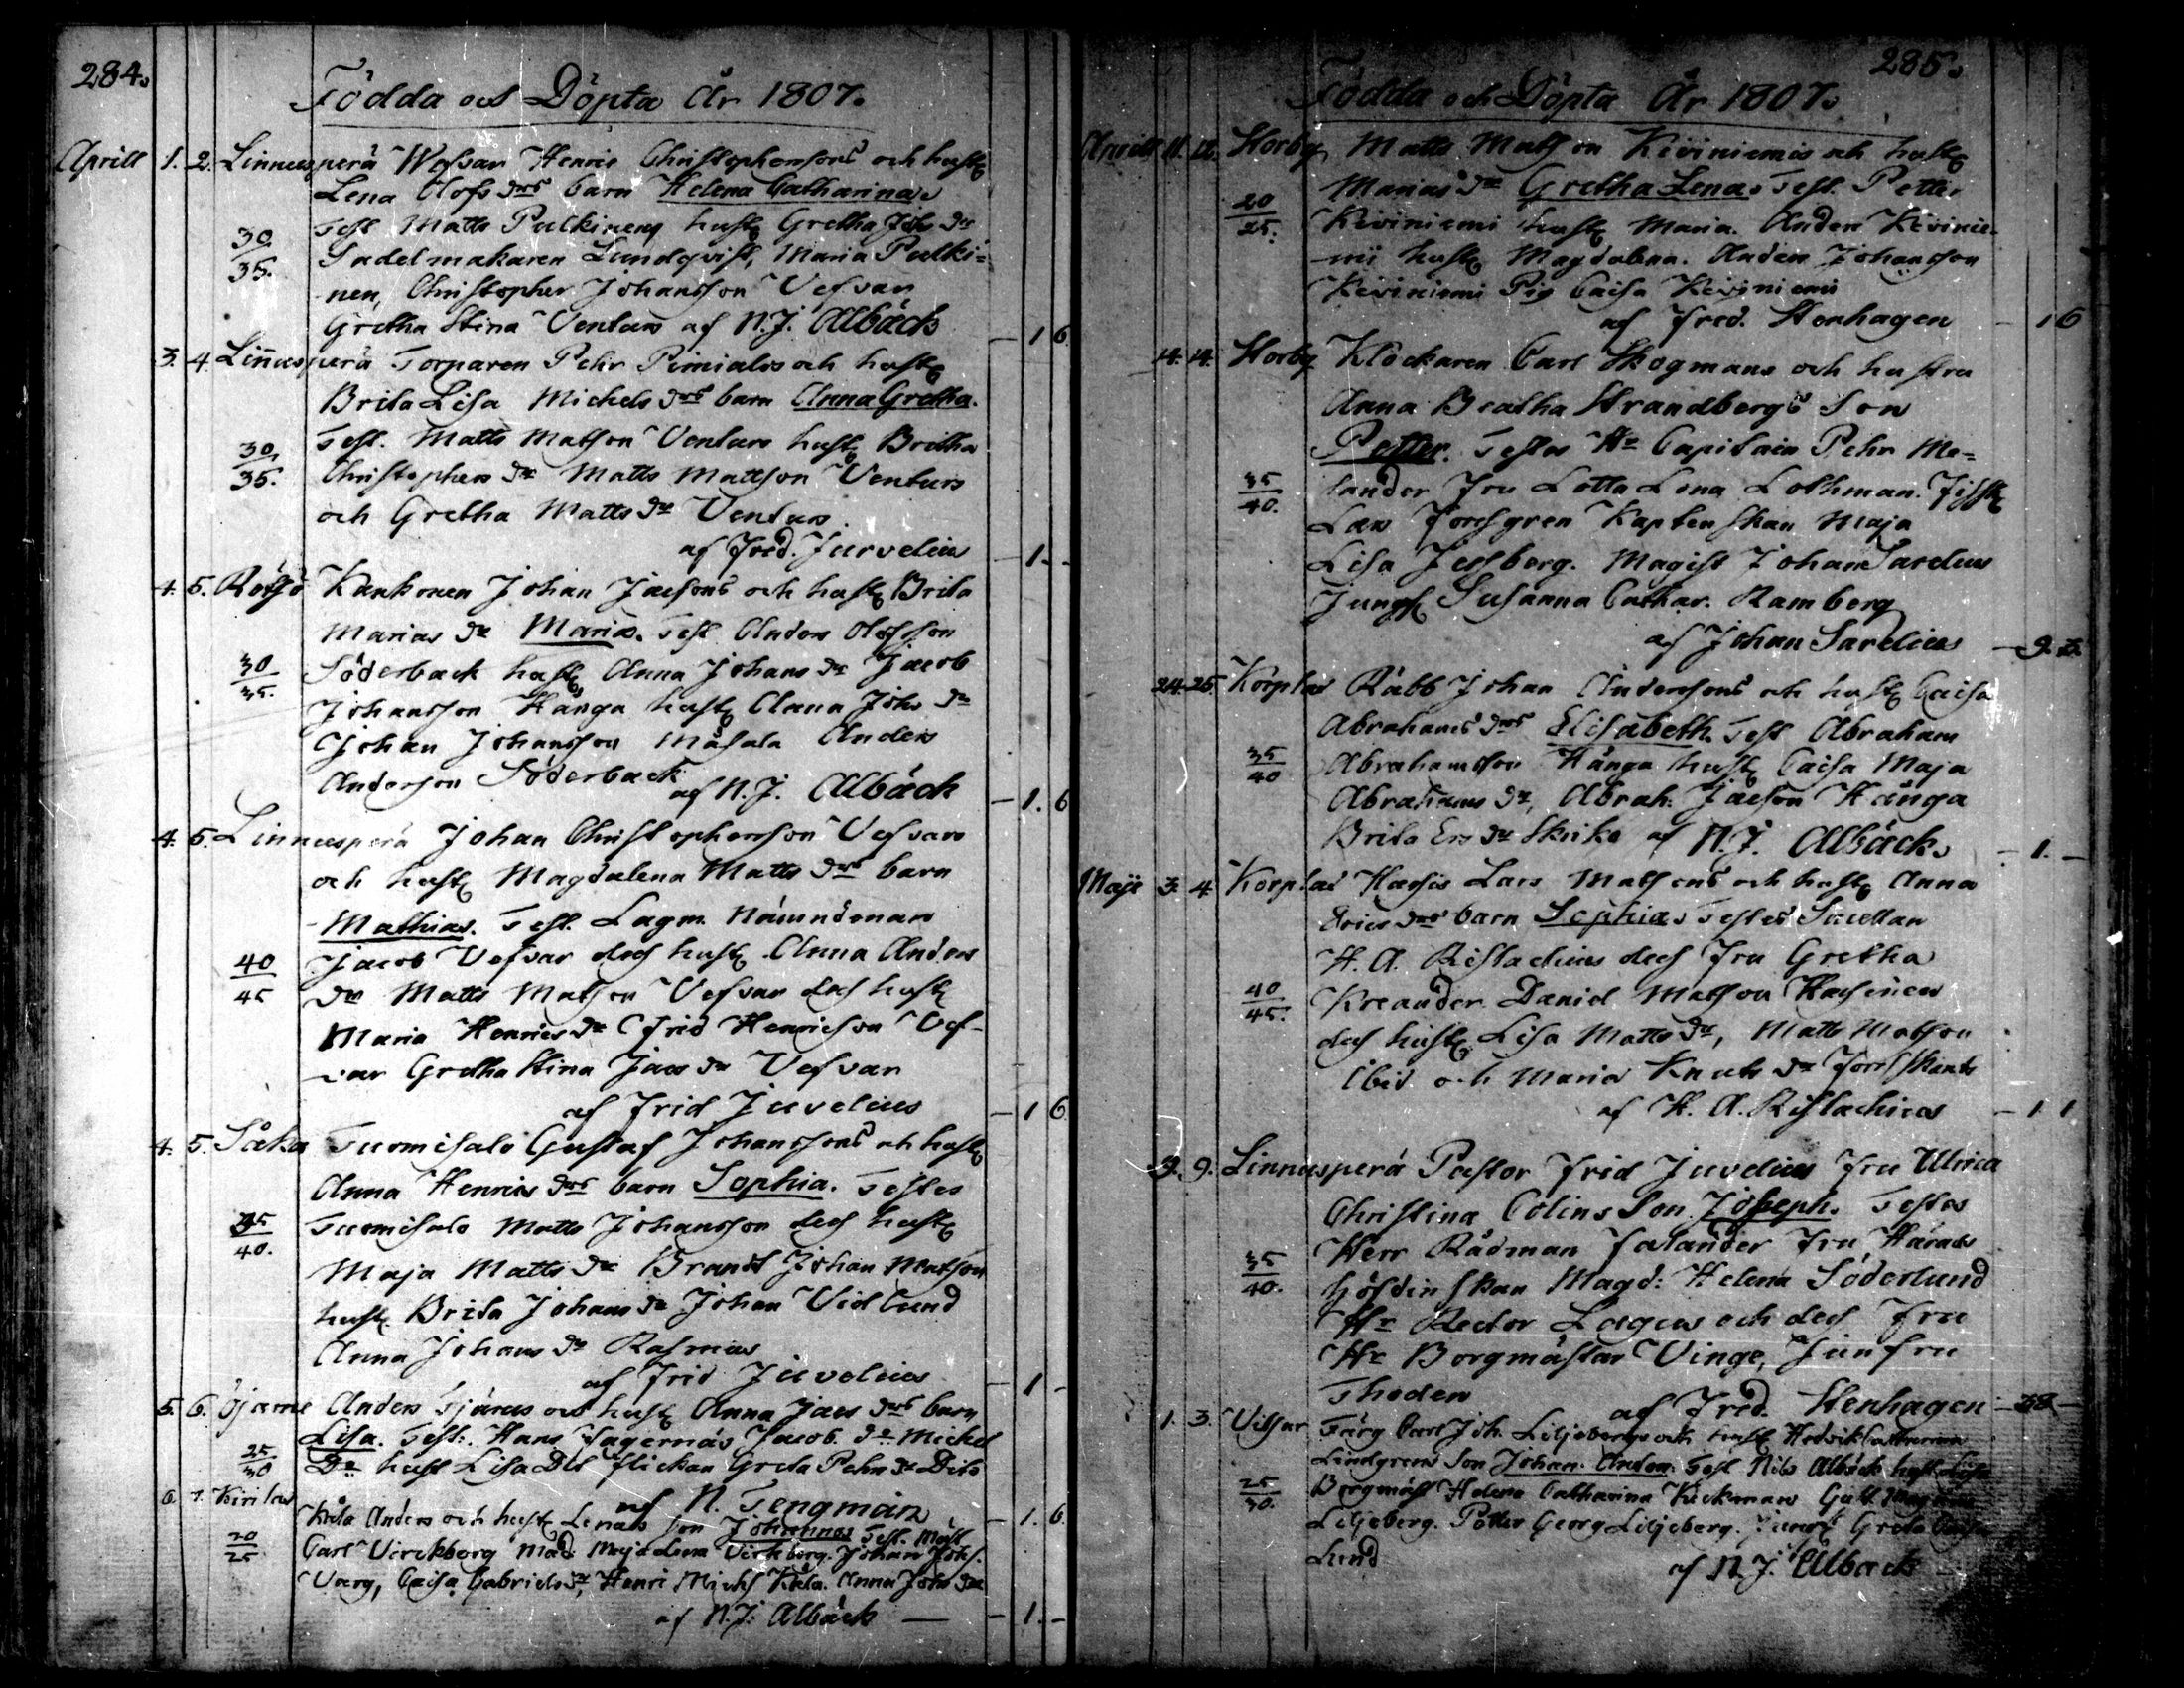 284.
Födda och Döpta År 1807.
Aprill 1. 2. Linnusperä Wefvar Henric Christophersons och hust
Lena Olofs drs barn Helena Catharina.
Test Matts Pulkinen hust Gretha Johs dr
30/35. Sadelmakaren Lundqvist, Maria Pulki=
nen, Christopher Johansson Vefvar
Gretha Stina Venturs af N. J. Albäck - 1 6
3. 4. Linnusperä Torparen Pehr Pimialos och hust
Brita Lisa Michels drs barn Anna Gretha.
Test. Matts Matson Venturs hust Britha
30/35. Christophers dr Matts Mattson Venturs
och Gretha Matts dr Venturs.
af Fred. Juvelius - 1. -
4. 5. Rötsjö Kankonen Johan Jacsons och hust Brita
Marias dr Maria. Test Anders Olofsson
30/35. Söderback hust Anna Johans dr Jacob
Johansson Hånga hust Anna Johs dr
Johan Johansson Måsala Anders
Anderson Söderback
af N. J. Albäck - 1. 6
4. 5. Linnusperä Johan Christophersson Vefvars
och hust Magdalena Matts drs barn
Mathias. Test. Lagm. Nämndeman
40/45 Jacob Vefvar des hust Anna Anders
dr Matts Matson Vefvar des hust
Maria Henrics dr Frid Henricson Vef-
var Gretha Stina Jacs dr Vefvar
af Frid Juvelius - 1 6
4. 5. Såka Tuomisalo Gustaf Johanssons och hust
Anna Henrics drs barn Sophia. Testes
35/40. Tuomisalo Matts Johansson des hust
Maja Matts dr Brandt Johan Matson
hust. Brita Johans dr Johan Vidlund
Anna Johans dr Rasmus
af Frid Juvelius - 1 -
5. 6. Öjarne Anders Tjärus och hust Anna Jacs drs barn
Lisa. Test. Hans Fagernäs Jacob. dr Michel
25/30 Do hust Lisa Dit flickan Greta Pehrs dr Dito
af N. Tengman - 1. 6
6. 7. Kirilax Kåla Anders och hust Lenas son Johannes Test. Mäst
20/25 Carl Virckberg Mad. Maja Lena Virckberg. Johan Johs.
Varg, Caisa Gabriels dr, Henri Michs Kåla. Anna Johs dr
af N. J. Albäck - 1. -
285.
Födda och Döpta År 1807.
Aprill 11. 12. Storby Matts Matson Kiviniemis och hust
Marias dr Gretha Lena. Test. Petter
20/25. Kiviniemi hust Maria. Anders Kivinie-
mi hust Magdalena. Anders Johansson
Kiviniemi Pig Caisa Kiviniemi
af Fred. Stenhagen - 1 6
14. 14. Storby Klockaren Carl Skogmans och hustru
Anna Beatha Strandbergs Son
Petter. Testes Hr Capitain Pehr Me=
35/40. lander Fru Lotta Lena Lothman.
Lars Forsgren Kaptenskan Maja
Lisa Jessberg. Magist Johan Sarelius
Jungf Susanna Cathar. Ramberg
af Johan Sarelius
24 25. Korplax Räbb Johan Anderssons och hust Caisa
Abrahams drs Elisabeth. Test Abraham
35/40 Abrahamsson Hånga hust Caisa Maja
Abrahams dr, Abrah. Jacson Hånga
Brita Ers dr Skrika af N. J. Albäck. - 1. -
Maji 3. 4. Korplax Harsis Lars Matsons och hust Anna
Erics drs barn Sophia. Testes
H. A. Ristachius des Fru Gretha
40/45. Kreander. Daniel Matson Hasinen
des hust Lisa Matts dr, Matts Matson
ibid och Maria Knuts dr
af H. A. Ristachius - 1 1
9. 9. Linnusperä Pastor Frid Juvelius Fru Ulrica
Christina Colins Son Joseph. Testes
35/40. Herr Rådman Falander Fru Härads
höfdinskan Magd: Helena Söderlund
Hr Rector Lagus och des Fru
Hr Borgmästar Vinge, Junfru
Thoden af Fred. Stenhagen
1. 3. Vitsar Färg Carl Joh. Liljebergs och hust Hedvik Catharina
Lindgrens Son Johan. Anders. Test Nils Albäck hust Lisa
25/30. Borgmäst Helena Catharina Kuckman
Liljeberg. Petter Georg Liljeberg. Jungf Greta Caisa
Lund
af N. J. Albäck